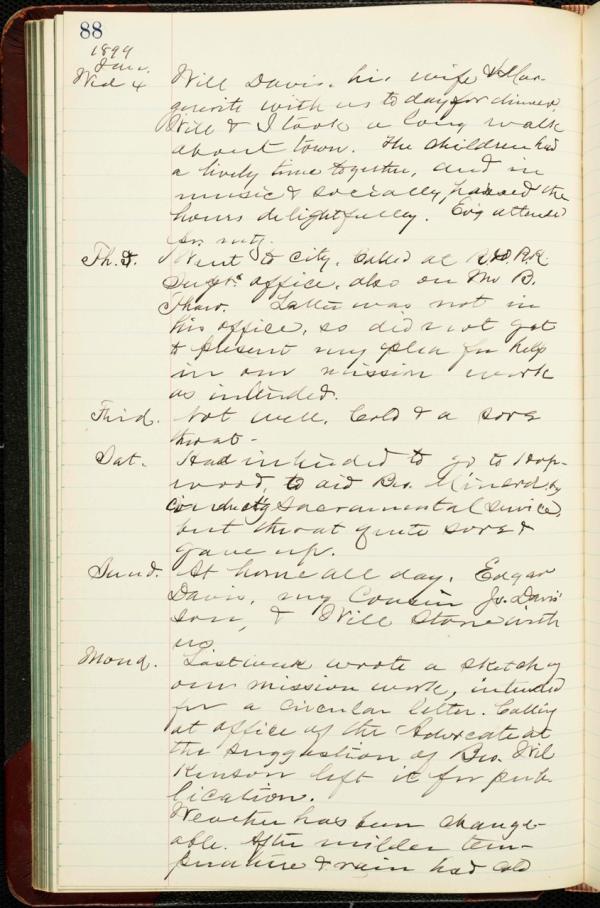 88
1899
Jan.
Wed 4 Will Davis, his wife & Mar-
guerite with us to day for dinner.
Will & I took a long walk
about town. The children had
a lively time together, and in
music & socially, passed the
hours delightfully. Ev'g attended
Th. 5. Went to city. Called at R.R.
Supt's office, also on Mr B.
Thaw. Latter was not in
his office, so did not get
to present my plea for help
in our mission work
as intended.
Frid. Not well. Cold & a sore
throat -
Sat. Had intended to go to Hop-
wood, to aid Bro. Minerd by
conducting Sacramental service,
but throat quite sore &
gave up.
Sund. At home all day. Edgar
Davis, my Cousin Jo. Davis'
son, & Will Stone with
us
Mond. Last week wrote a sketch of
our mission work, intended
for a circular letter. Calling
at office of the Advocate at
the suggestion of Bro. Wil
kinson left it for pub-
lication.
Weather has been change-
able. After milder tem-
perature & rain had cold